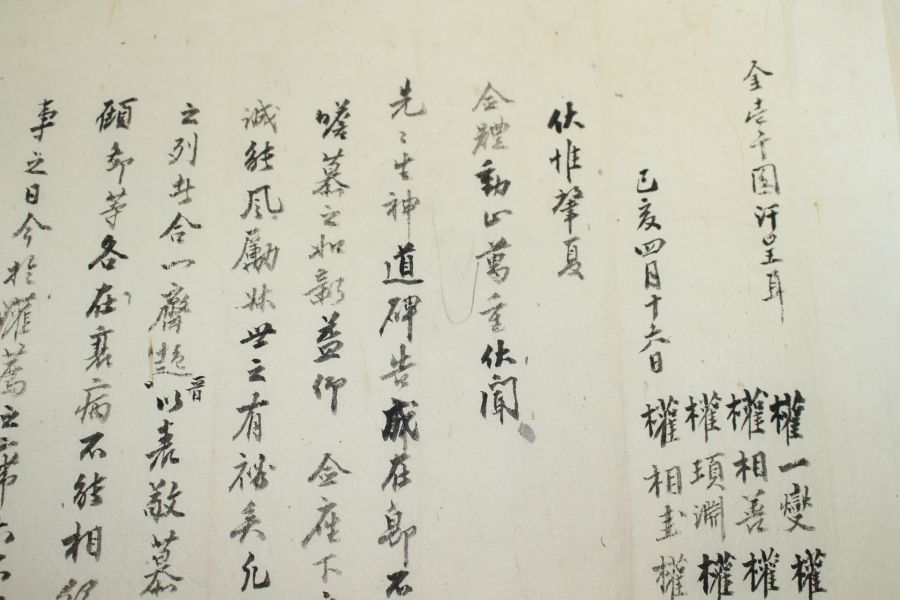 金壱千圓汗呈耳
己亥四月十六日
權一燮 權
權相善 權
權頊淵 權
權相圭 權
伏惟肇夏
僉體動止萬重伏聞
先〻生神道碑告成在卽不
嗟慕之如新益仰 僉座下
誠能風勵妹世之有裨矣凡
之列共合一齊趍以表敬慕
晋
顧鄙等各在衰病不能相
事之日今於濯蒿之